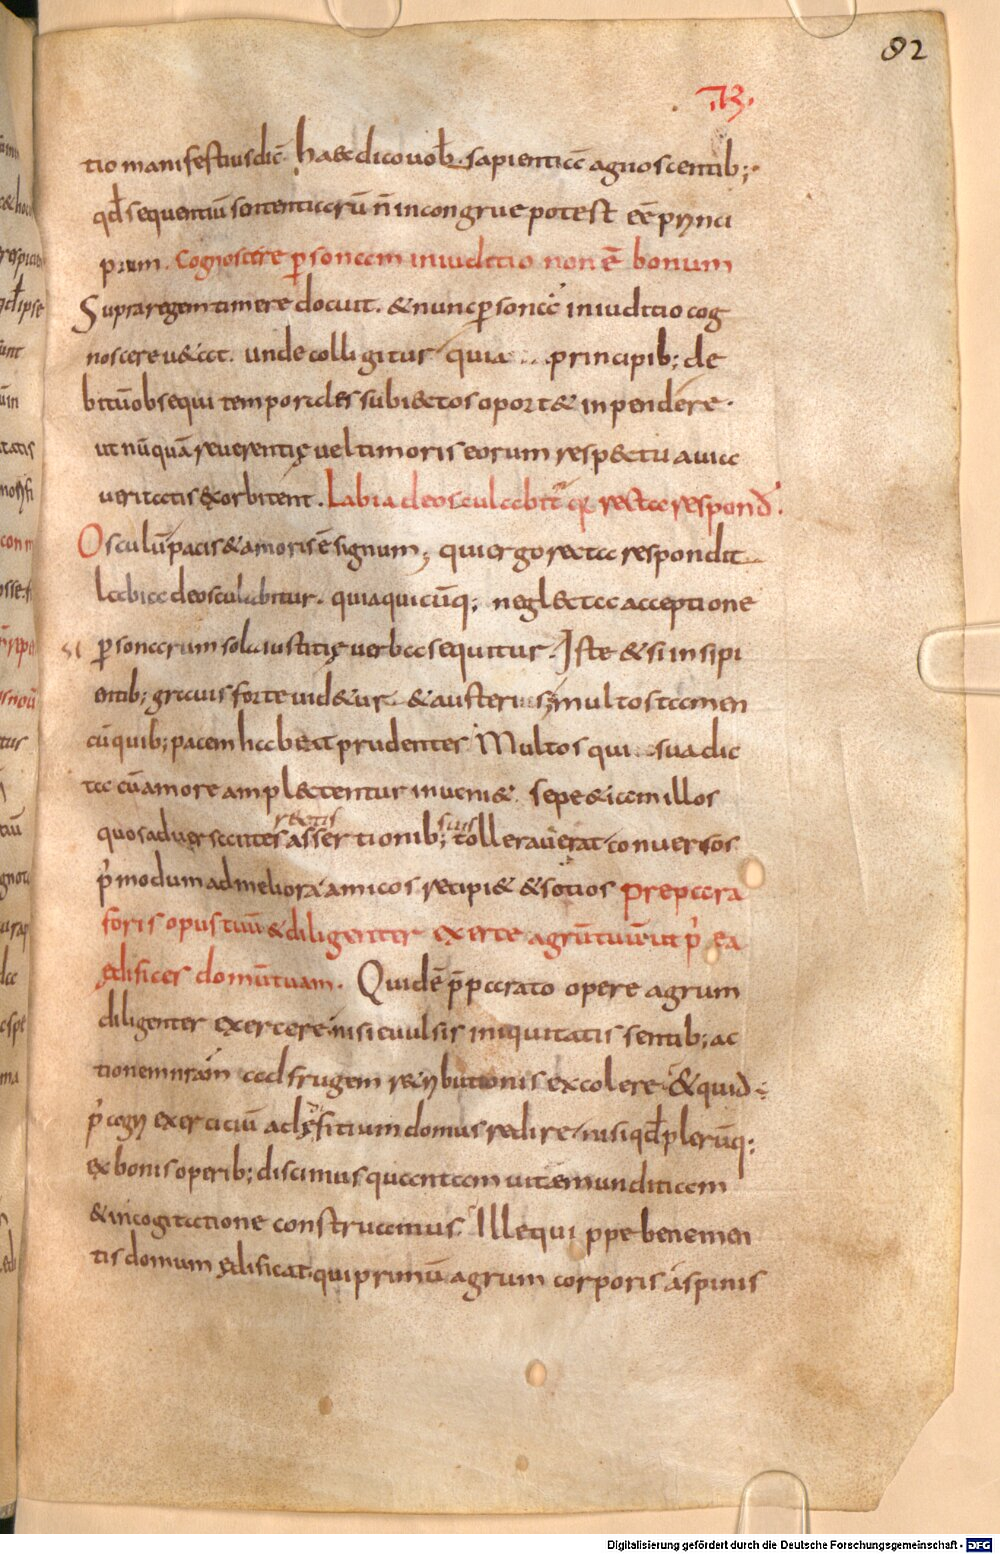 82
.73.
tio manifestius dic̄. haec dico uob̄. sapientia agnoscentib;.
qđ sequentiū sententiarū n̄ incongrue potest eē prınci
pium. Cognoscere p̱sonam in iuditio non ē bonum
Supra regem timere docuit. & nunc p̱sonā in iuditio cog
noscere u&at. unde colligitur quia principib; de
bitū obsequi temporales subiectos oport& inpendere.
ut nūquā reuerentię uel timoris eorum respectu a uia
ueritatis exorbitent. Labia deosculabit͛ q̱ recta respond̄.
Osculū pacis & amoris ē signum; qui ergo recta respondit
labia deosculabitur. quia quicūq; neglecta acceptione
p̱sonarum sola iustitię uerba sequitur. Iste & si insipi
entib; grauis forte uid&ur & austerus multos tamen
cū quib; pacem habeat prudentes Multos qui sua dic
ta cū amore amplectentur inueni&. sepe & iam illos
rectis suis
quos aduersantes assertionib; tollerauerat conuersos
p̓modum ad meliora amicos recipi& & socios prepara
foris opus tuū & diligenter exerce agrū tuū ut p̓ ea
ędifices domū tuam. Quid ē p̄parato opere agrum
diligenter exercere nisi euulsis iniquitatis sentib; ac
tionem nr̄am ad frugem retributionis excolere & quid
p̓ agri exercitiū ad ędifitium domus redire. nisi qđ plerūq;
ex bonis operib; discimus quantam uitę munditiam
& in cogitatione construamus. Ille quippe bene men
tis domum ędificat. qui primū agrum corporis a spinis
Digitalisierung gefördert durch die Deutsche Forschungsgemeinschaft - DFG